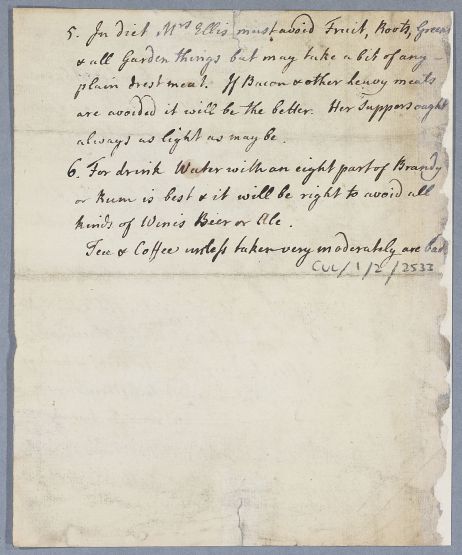 5. In diet Mrs Ellis must avoid Fruit, Roots, Greens
& all Garden things but may take a bit of any
plain drest meat. If Bacon & other heavy meats
are avoided it will be the better. Her Suppers ought
always as light as may be.
6. For drink Water with an eight part of Brandy
or Rum is best & it will be right to avoid all
kinds of Wines Beer or Ale.
Tea & Coffee unless taken very moderately are bad
CUL/1/2/2533